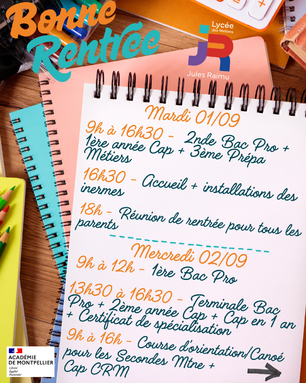 Bonne
Rentrée
Lycée
des Métiers
Jules Raimu
Mardi 01/09
9h à 16h30 - 2nde Bac Pro +
1ère année Cap + 3ème Prépa
Métiers
16h30 - Accueil + installations des
inernes
18h - Réunion de rentrée pour tous les
parents
Mercredi 02/09
9h à 12h - 1ère Bac Pro
13h30 à 16h30 - Terminale Bac
Pro + 2ème année Cap + Cap en 1 an
+ Certificat de spécialisation
9h à 16h - Course d'orientation/Canoé
pour les Secondes Mtne +
Cap CRM
ACADÉMIE
DE MONTPELLIER
Liberté
Égalité
Fraternité